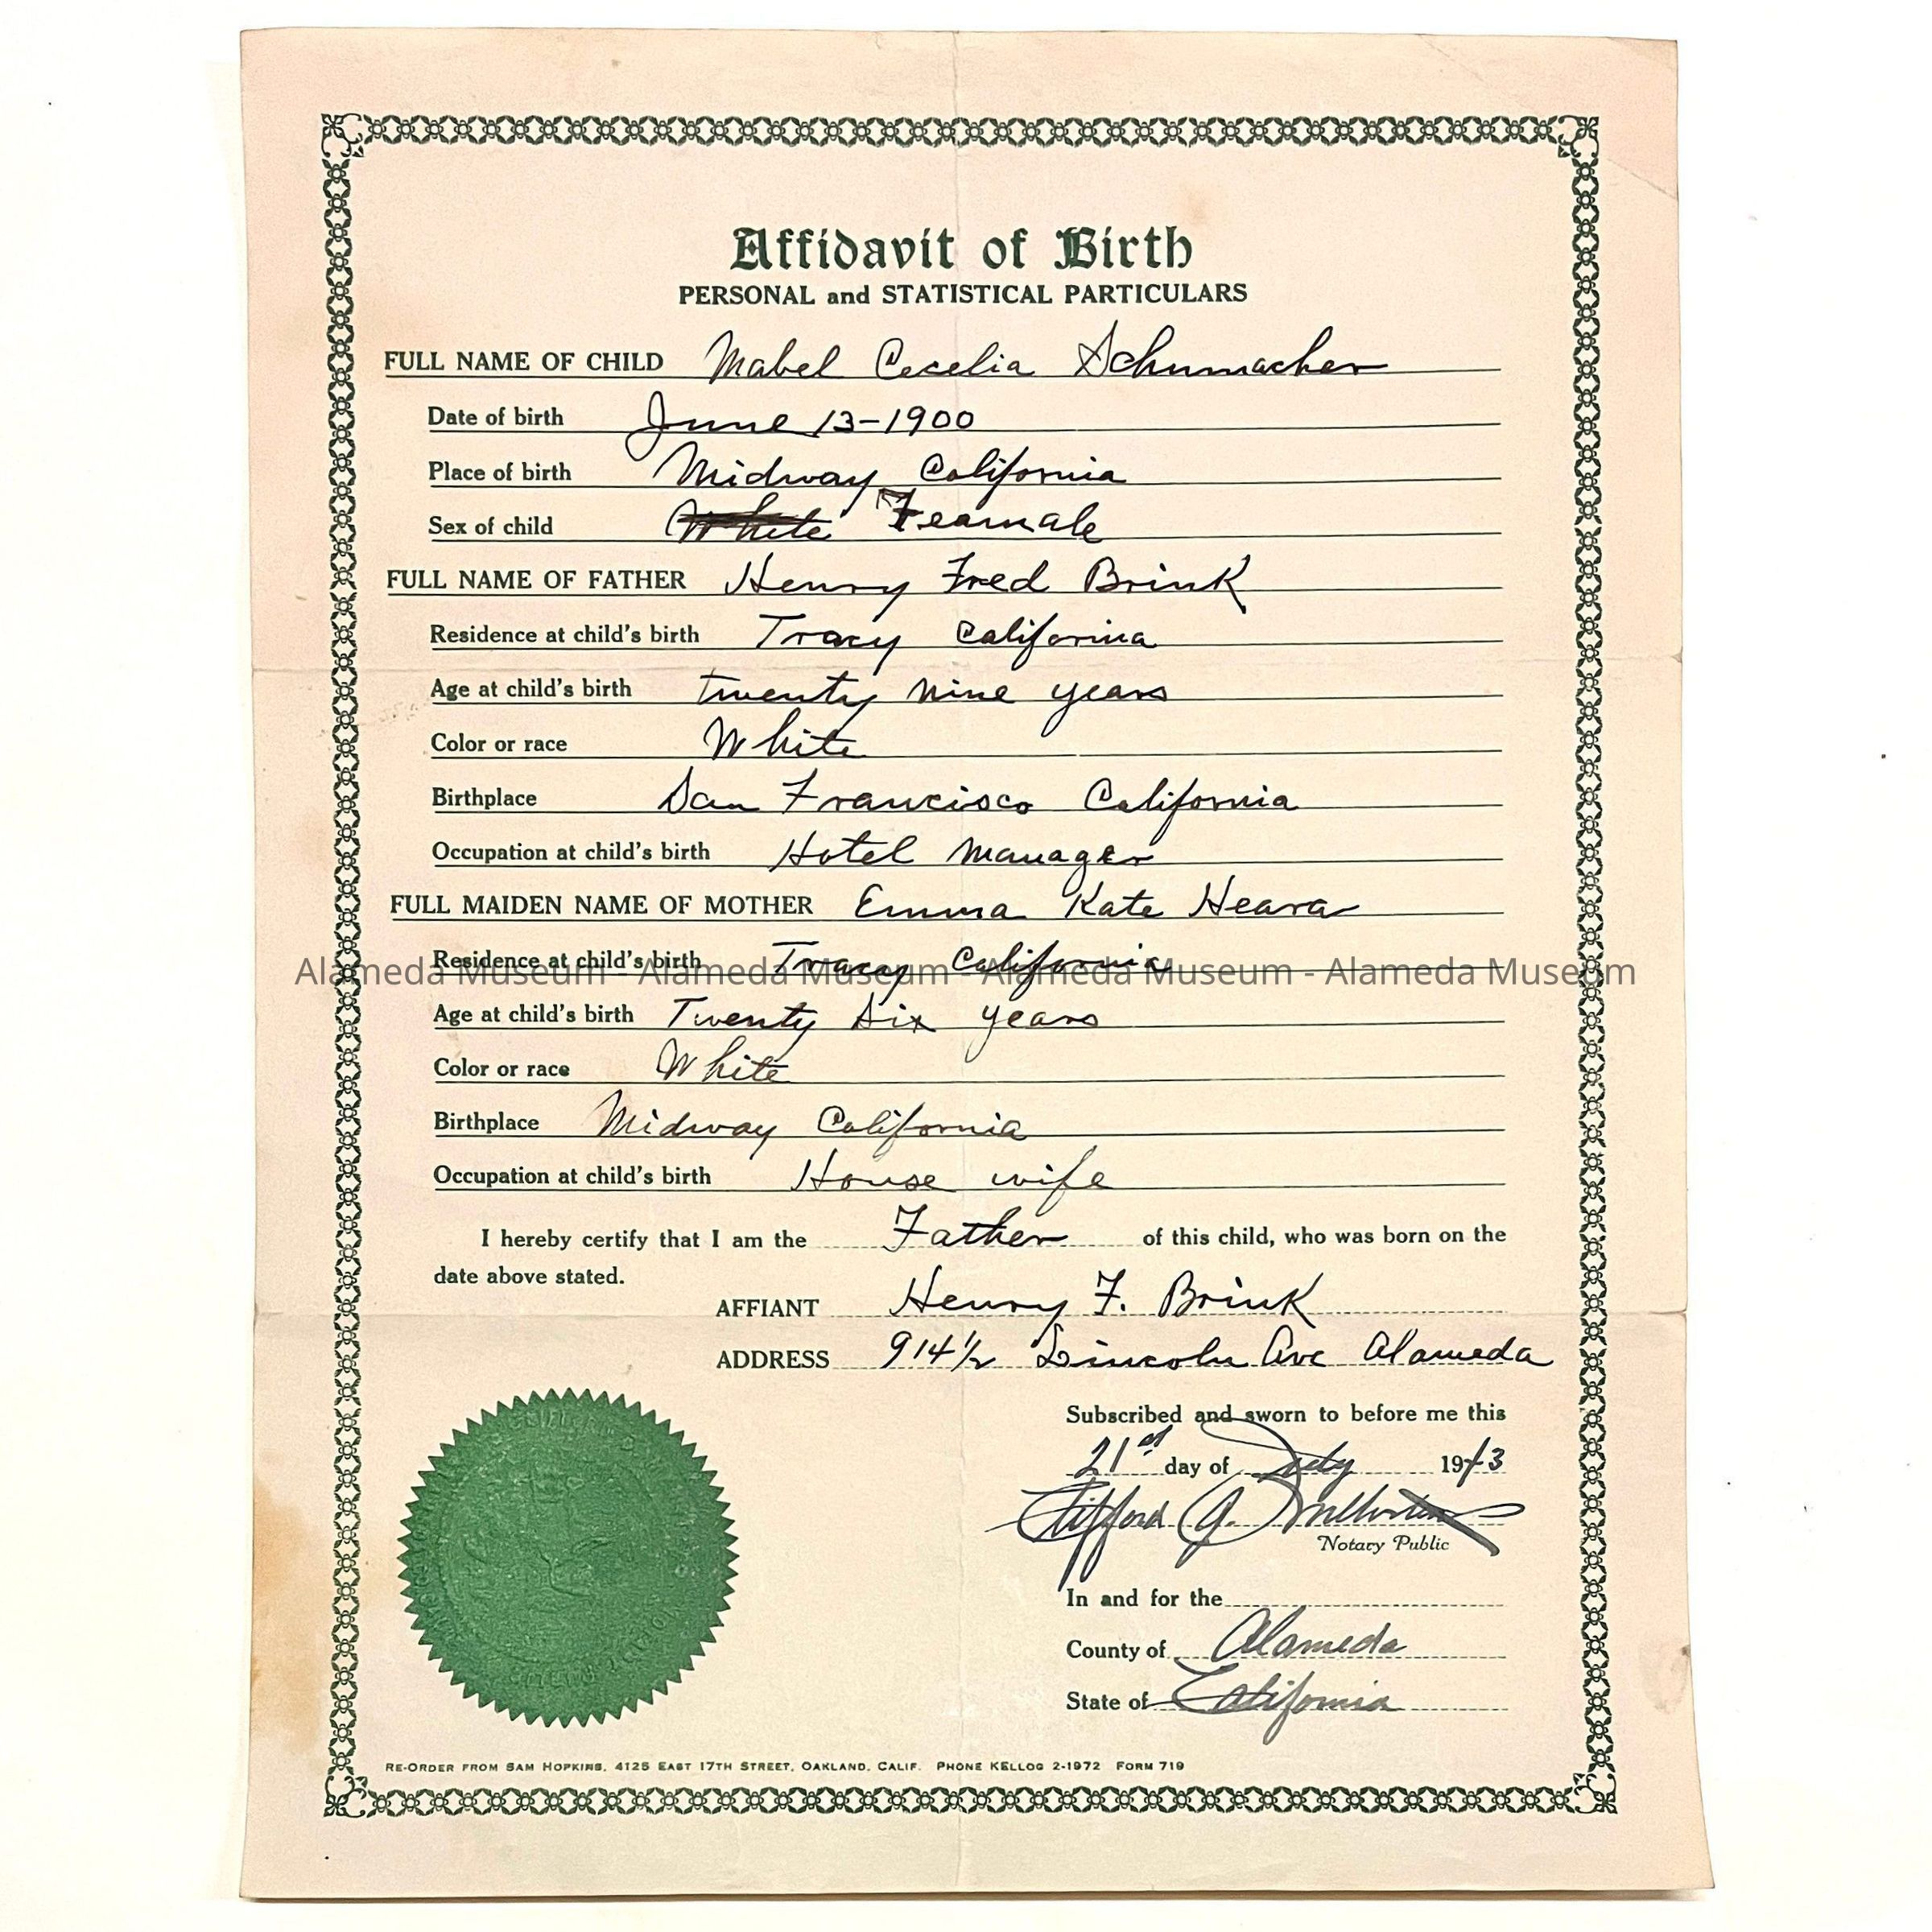 Affidavit of Birth
PERSONAL and STATISTICAL PARTICULARS
FULL NAME OF CHILD Mabel Cecelia Schumacher
Date of birth June 13-1900
Place of birth Midway California
Sex of child White Feamale
FULL NAME OF FATHER Henry Fred Brink
Residence at child's birth Tracy California
Age at child's birth twenty nine years
Color or race White
Birthplace San Francisco California
Occupation at child's birth Hotel Manager
FULL MAIDEN NAME OF MOTHER Emma Kate
Residence at child's birth Tracy California
Alameda Museum - Alameda Museum - Alameda Museum - Alameda Museum
Age at child's birth Twenty Six years
Color or race White
Birthplace Midway California
Occupation at child's birth House wife
I hereby certify that I am the Father of this child, who was born on the
date above stated.
AFFIANT Henry F. Brink
ADDRESS 914½ Lincoln Ave Alameda
Subscribed and sworn to before me this
21st day of July 1943
Clifford
Notary Public
In and for the
County of Alameda
State of California
RE-ORDER FROM SAM HOPKINS, 4125 EAST 17TH STREET, OAKLAND, CALIF. PHONE KELLOG 2-1972 FORM 719